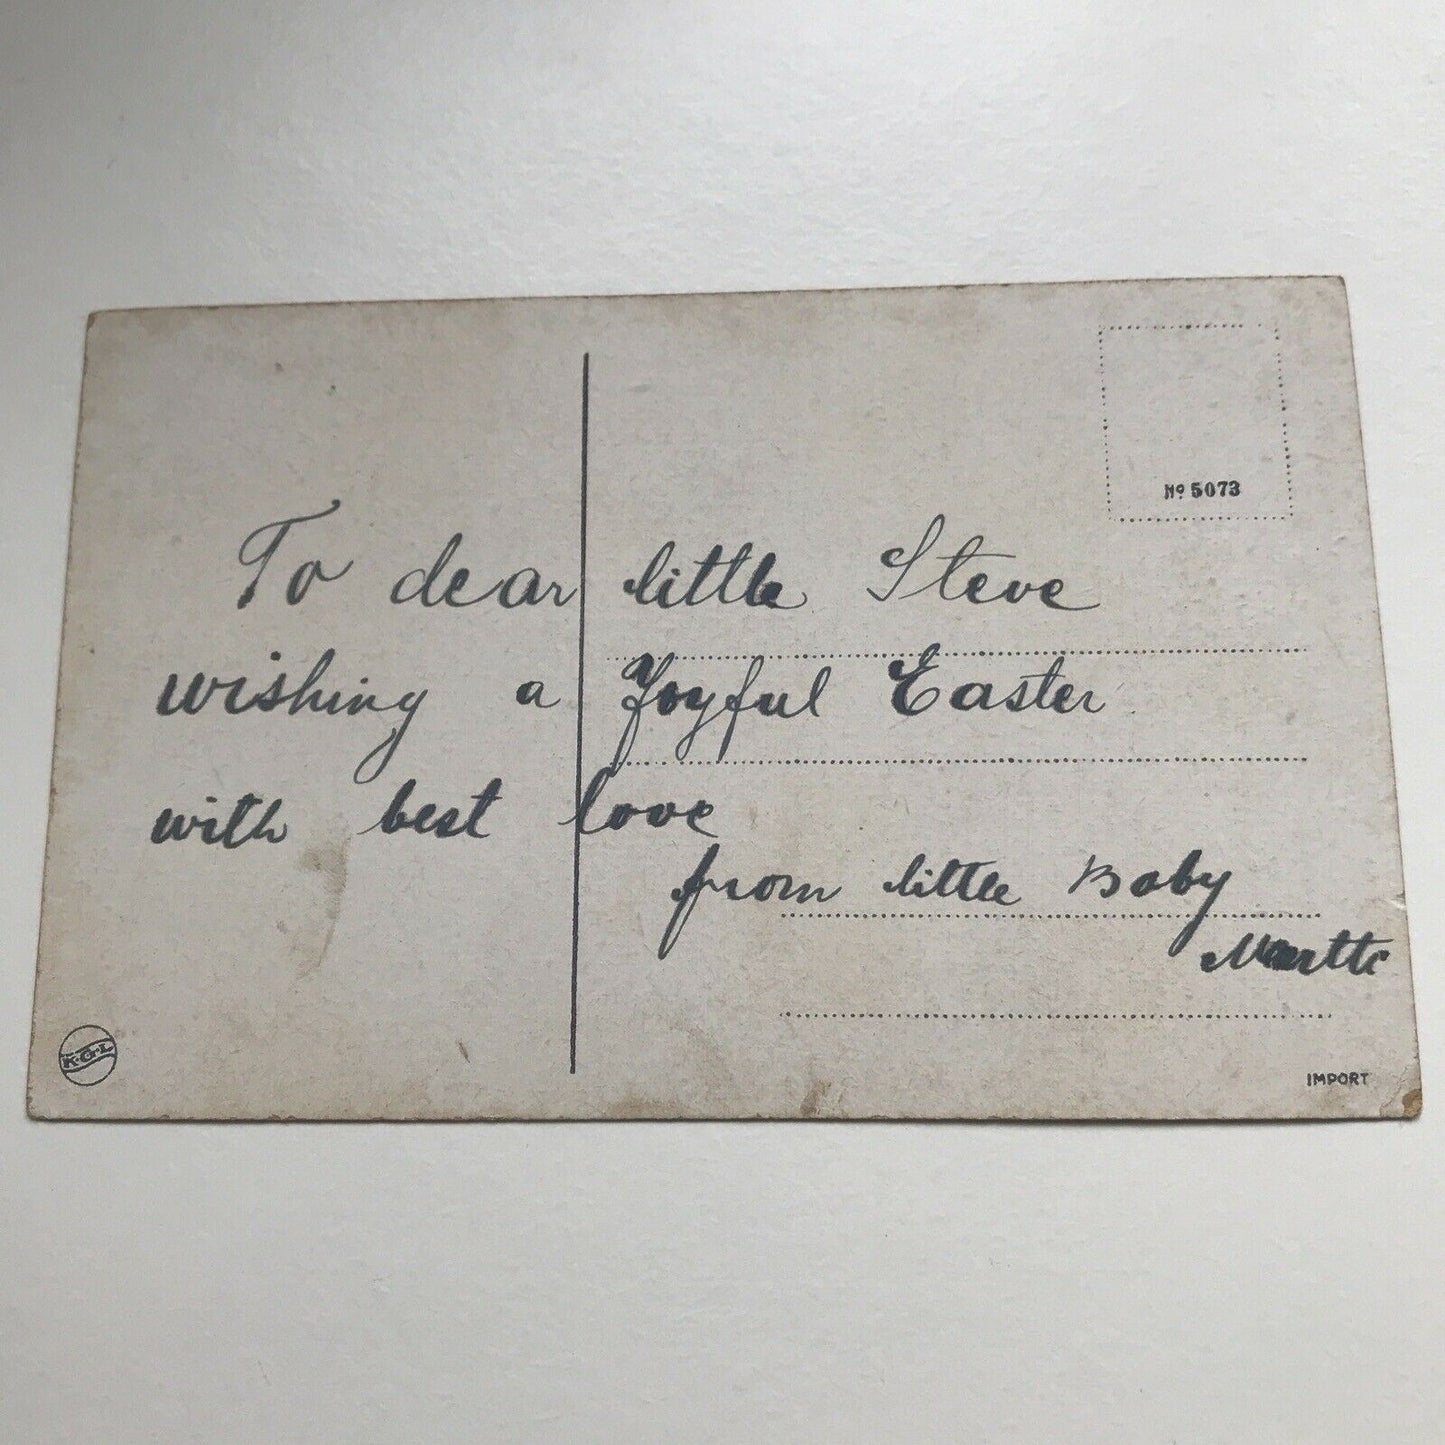 Nº 5073
To dear little Steve
wishing a Joyful Easter
with best love
from little Baby
K.G.L.
IMPORT